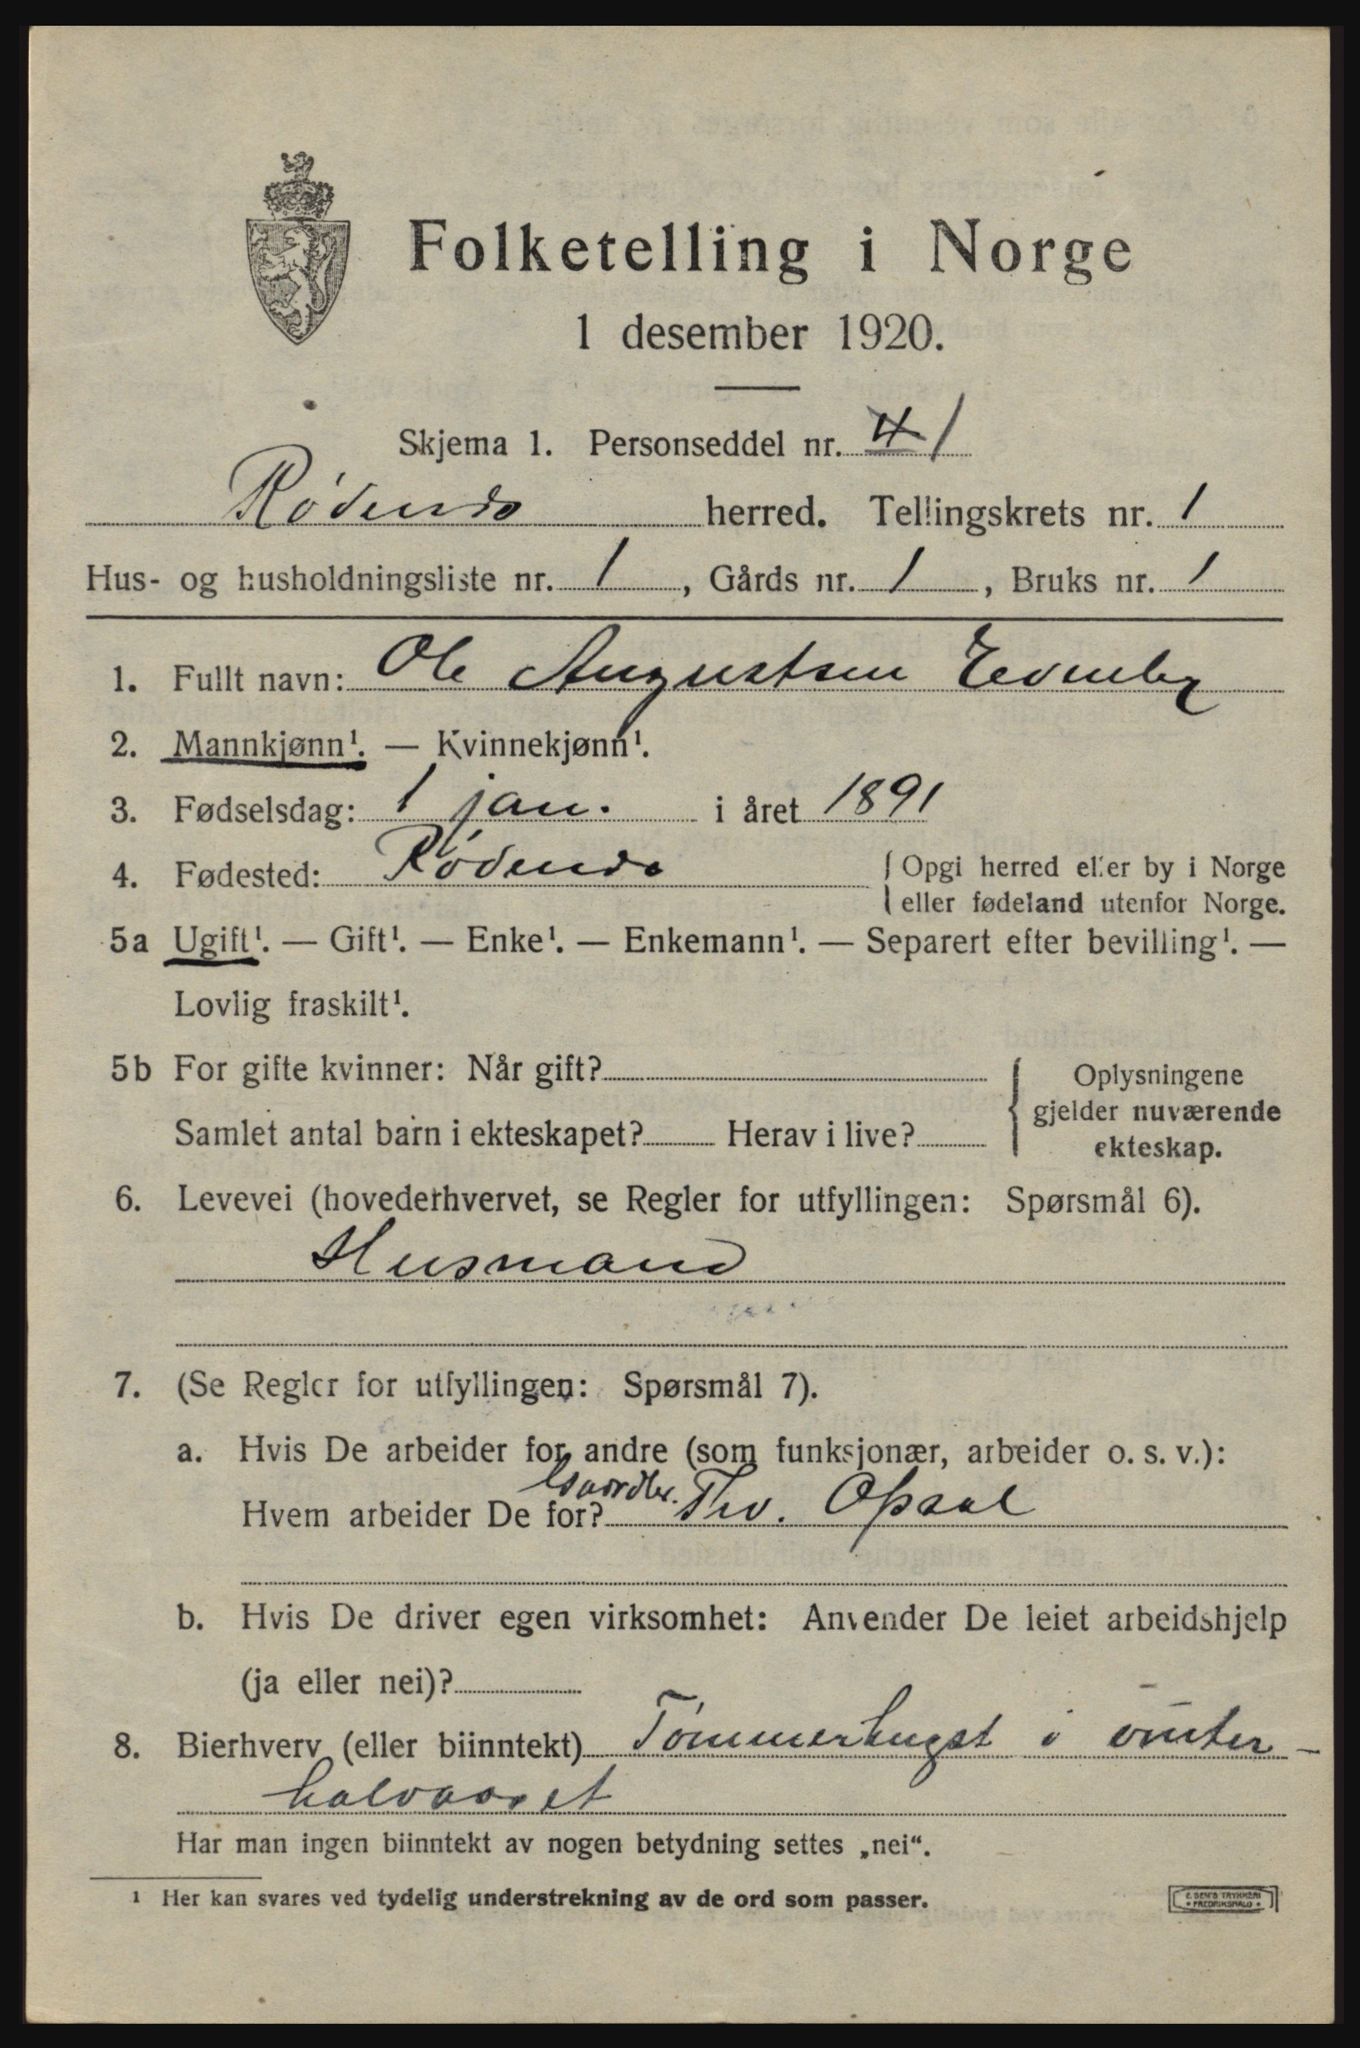 Folketelling i Norge
1 desember 1920.
Skjema 1. Personseddel nr. 4 1
Rødenes herred. Tellingskrets nr. 1
Hus- og husholdningsliste nr. 1, Gårds nr. 1, Bruks nr. 1
1. Fullt navn: Ole Augustsen
2. Mannkjønn¹. — Kvinnekjønn¹.
3. Fødselsdag: 1 jan. i året 1891
4. Fødested: Rødenes { Opgi herred eller by i Norge
eller fødeland utenfor Norge.
5a Ugift¹. — Gift¹. — Enke¹. — Enkemann¹. — Separert efter bevilling¹. —
Lovlig fraskilt¹.
5b For gifte kvinner: Når gift? { Oplysningene
gjelder nuværende
Samlet antal barn i ekteskapet? Herav i live?
ekteskap.
6. Levevei (hovederhvervet, se Regler for utfyllingen: Spørsmål 6).
Husmand
7. (Se Regler for utfyllingen: Spørsmål 7).
a. Hvis De arbeider for andre (som funksjonær, arbeider o. s. v.):
Hvem arbeider De for? Gaardbr. Thv. Opsal
b. Hvis De driver egen virksomhet: Anvender De leiet arbeidshjelp
(ja eller nei)?
8. Bierhverv (eller biinntekt) Tømmerhugst i vinter-
halvaaret
Har man ingen biinntekt av nogen betydning settes „nei“.
¹ Her kan svares ved tydelig understrekning av de ord som passer.
E. SEM'S TRYKKERI
FREDRIKSHALD